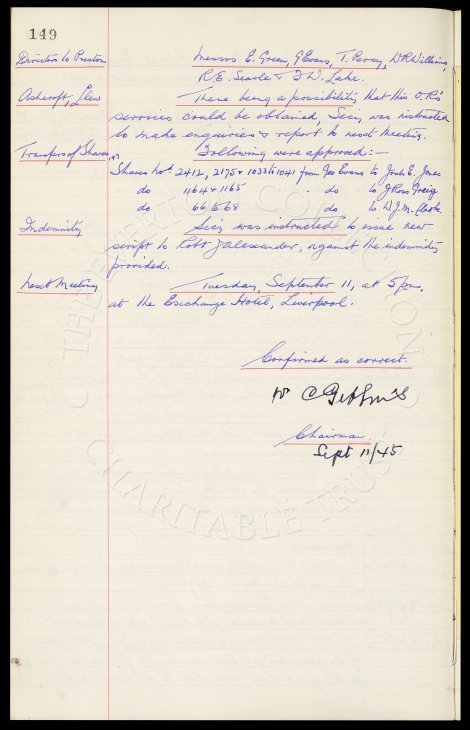 149
Directors to Preston Messrs E. Green, G Evans, T. Percy, W R Williams,
R. E. Searle & F. W. Lake.
Ashcroft, Llew There being a possibility that this O.R's
services could be obtained, Secy, was instructed
to make enquiries & report to next meeting.
Transfer of Shares Following were approved:-
Shares Nos. 2412, 2175 & 1033 to 1041 from Geo Evans to Josh E. Jones
do 1164 & 1165 . do to J Ross Greig
do 66 to 68 do to D. J. M. Clark
Indemnity Secy was instructed to issue new
script to Robt J Alexander, against the indemnity
provided.
Next Meeting Tuesday, September 11, at 5 pm,
at the Exchange Hotel, Liverpool.
Confirmed as correct.
W C
Chairman.
Sept 11/45
THE EVERTON COLLECTION
CHARITABLE TRUST